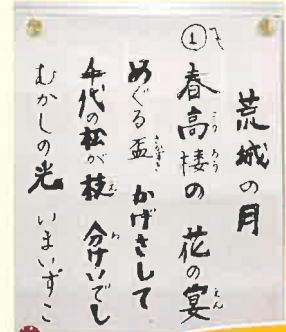 荒城の月
①春高楼の 花の宴
めぐる盃 かげさして
千代の松が枝 分けいでし
むかしの光 いまいずこ